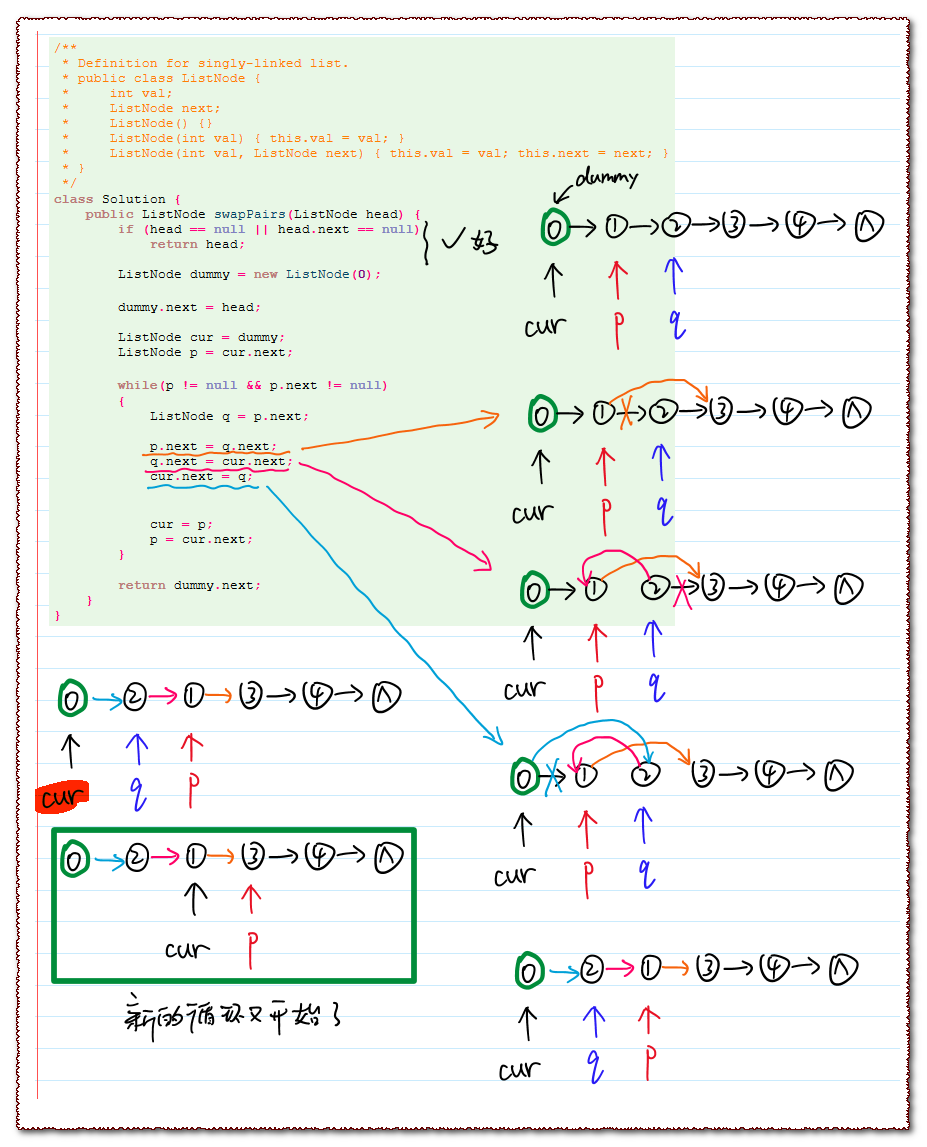 /**
 * Definition for singly-linked list.
 * public class ListNode {
 *     int val;
 *     ListNode next;
 *     ListNode() {}
 *     ListNode(int val) { this.val = val; }
 *     ListNode(int val, ListNode next) { this.val = val; this.next = next; }
 * }
 */
class Solution {
    public ListNode swapPairs(ListNode head) {
        if (head == null || head.next == null)
            return head;
        ListNode dummy = new ListNode(0);
        dummy.next = head;
        ListNode cur = dummy;
        ListNode p = cur.next;
        while(p != null && p.next != null)
        {
            ListNode q = p.next;
            p.next = q.next;
            q.next = cur.next;
            cur.next = q;
            cur = p;
            p = cur.next;
        }
        return dummy.next;
    }
}
✓好
dummy
0 → 1 → 2 → 3 → 4 → ∧
cur p q
0 → 1 → 2 → 3 → 4 → ∧
cur p q
0 → 1 2 → 3 → 4 → ∧
cur p q
0 → 1 2 3 → 4 → ∧
cur p q
0 → 2 → 1 → 3 → 4 → ∧
cur q p
0 → 2 → 1 → 3 → 4 → ∧
cur q p
0 → 2 → 1 → 3 → 4 → ∧
cur p
新的循环又开始了